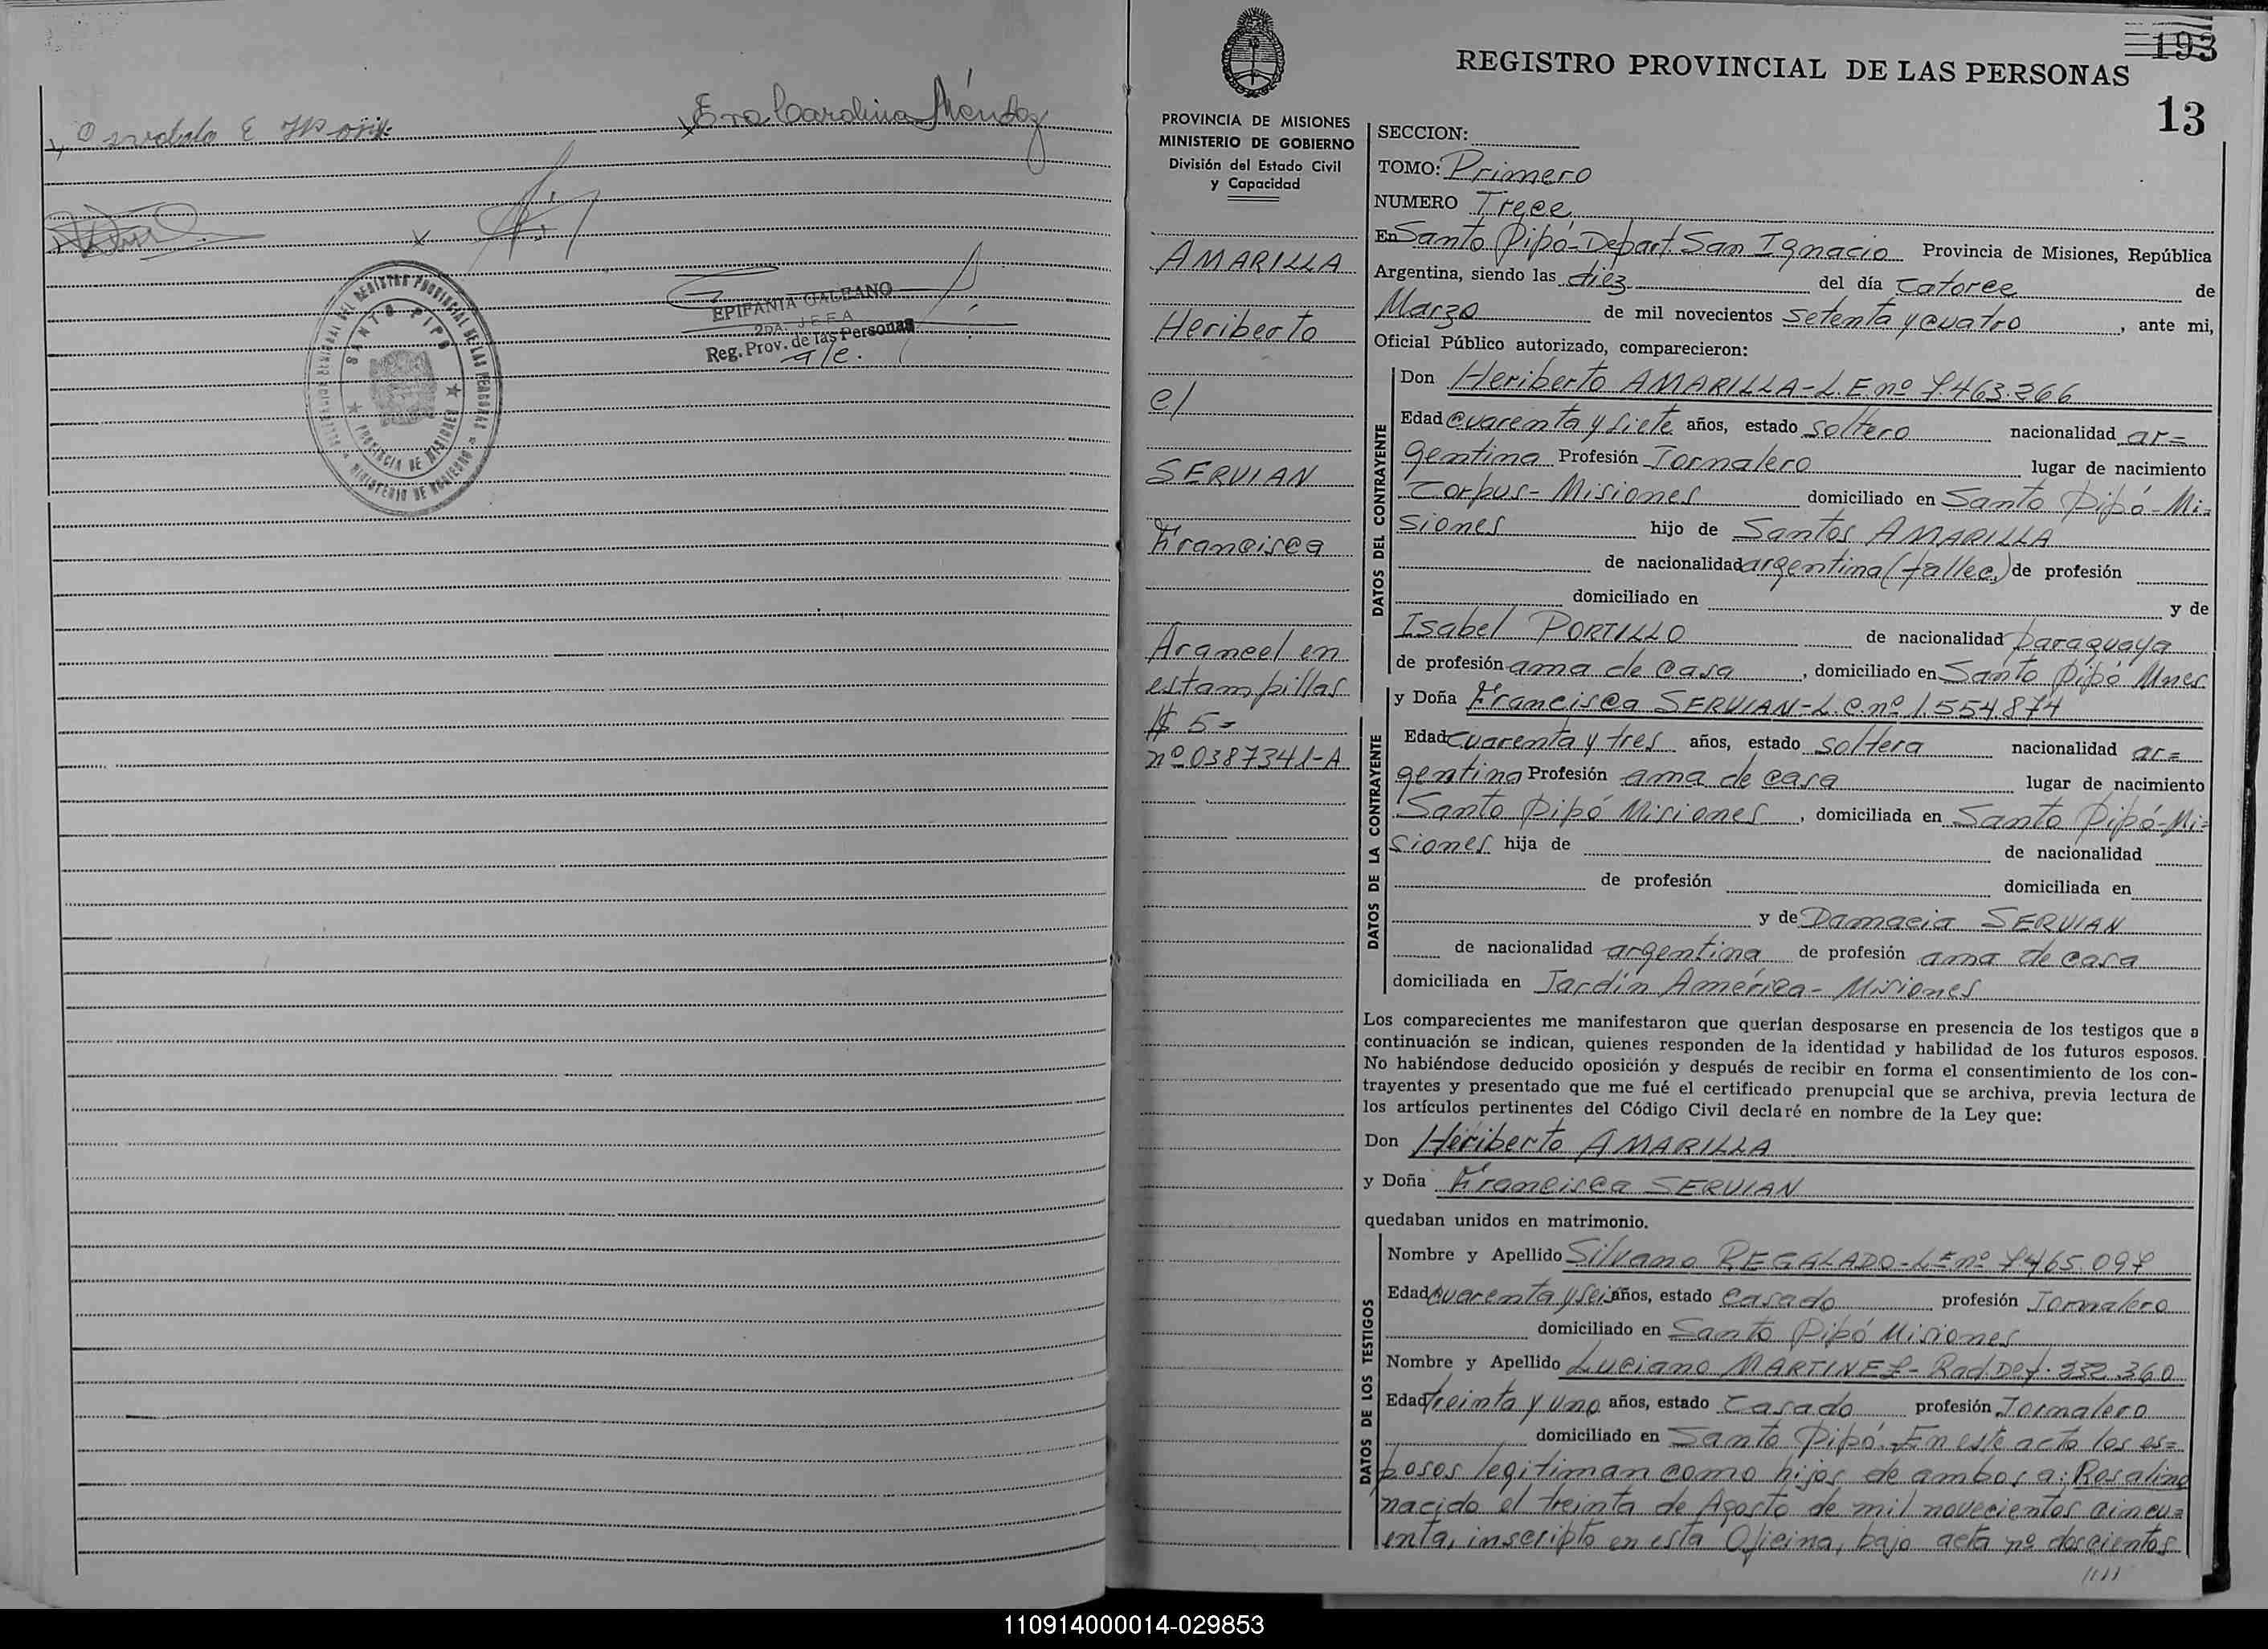 Eva Carolina Méndez
SANTO PIPO
PROVINCIA DE MISIONES
EPIFANIA GALEANO
2DA. JEFA
Reg. Prov. de las Personas
a/c.
193
REGISTRO PROVINCIAL DE LAS PERSONAS
13
PROVINCIA DE MISIONES
MINISTERIO DE GOBIERNO
División del Estado Civil
y Capacidad
AMARILLA
Heriberto
c/
SERVIAN
Francisca
Arancel en
estampillas
$ 5=
nº 0387341-A
SECCION:
TOMO: Primero
NUMERO Trece
En Santo Pipó-Depart. San Ignacio Provincia de Misiones, República
Argentina, siendo las diez del día catorce de
Marzo de mil novecientos setenta y cuatro, ante mi,
Oficial Público autorizado, comparecieron:
DATOS DEL CONTRAYENTE
Don Heriberto AMARILLA-L.E.nº 7.463.266
Edad cuarenta y siete años, estado soltero nacionalidad ar=
gentina Profesión Jornalero lugar de nacimiento
Corpus-Misiones domiciliado en Santo Pipó-Mi=
siones hijo de Santos AMARILLA
de nacionalidad argentina (fallec.) de profesión
domiciliado en y de
Isabel PORTILLO de nacionalidad paraguaya
de profesión ama de casa, domiciliado en Santo Pipó Mnes
DATOS DE LA CONTRAYENTE
y Doña Francisca SERVIAN-L.C.nº 1.554.874
Edad cuarenta y tres años, estado soltera nacionalidad ar=
gentina Profesión ama de casa lugar de nacimiento
Santo Pipó Misiones, domiciliada en Santo Pipó-Mi=
siones hija de de nacionalidad
de profesión domiciliada en
y de Damacia SERVIAN
de nacionalidad argentina de profesión ama de casa
domiciliada en Jardín América-Misiones
Los comparecientes me manifestaron que querían desposarse en presencia de los testigos que a
continuación se indican, quienes responden de la identidad y habilidad de los futuros esposos.
No habiéndose deducido oposición y después de recibir en forma el consentimiento de los con-
trayentes y presentado que me fué el certificado prenupcial que se archiva, previa lectura de
los artículos pertinentes del Código Civil declaré en nombre de la Ley que:
Don Heriberto AMARILLA
y Doña Francisca SERVIAN
quedaban unidos en matrimonio.
DATOS DE LOS TESTIGOS
Nombre y Apellido Silvano REGALADO-LEnº 7465.097
Edad cuarenta y seis años, estado casado profesión Jornalero
domiciliado en Santo Pipó Misiones
Nombre y Apellido Luciano MARTINEZ- Rad.Def. 232.360
Edad treinta y uno años, estado casado profesión Jornalero
domiciliado en Santo Pipó. En este acto los es=
posos legitiman como hijos de ambos a: Rosalino
nacido el treinta de Agosto de mil novecientos cincu=
enta, inscripto en esta Oficina, bajo acta nº doscientos
////
110914000014-029853